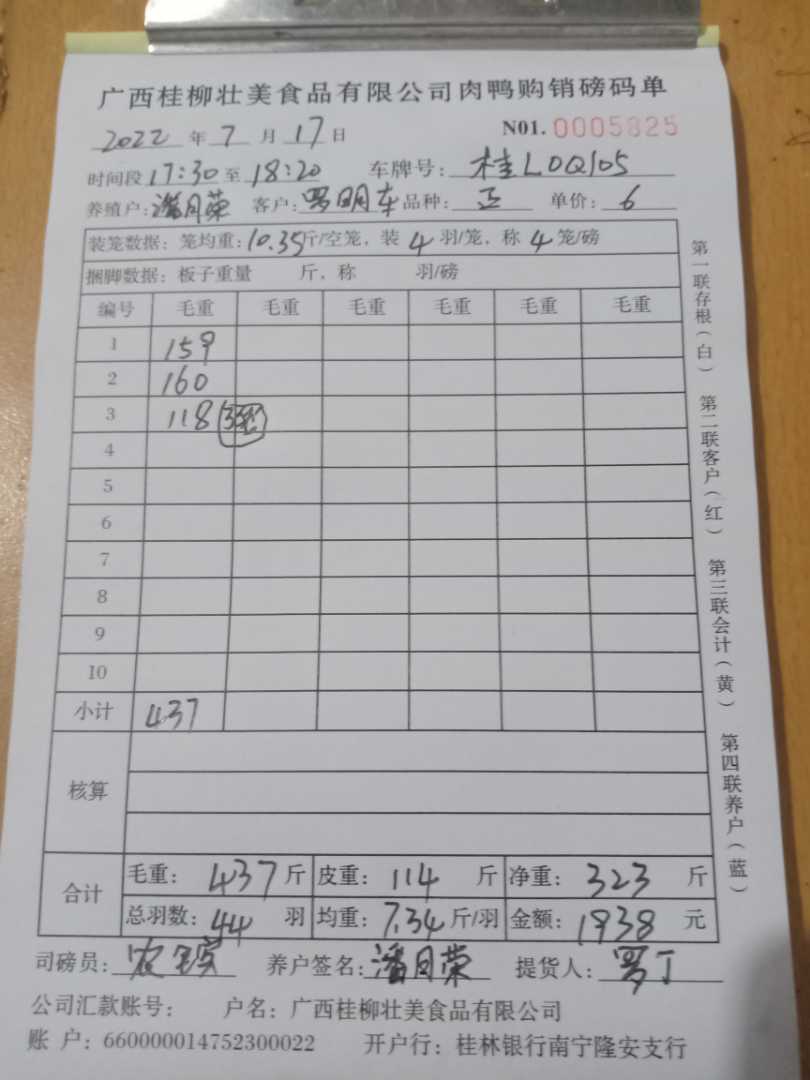 广西桂柳壮美食品有限公司肉鸭购销磅码单
2022 年 7 月 17 日 N01. 0005825
时间段 17:30 至 18:20 车牌号: 桂L0Q105
养殖户: 潘月荣 客户: 罗明车 品种: 正 单价: 6
装笼数据: 笼均重: 10.35 斤/空笼, 装 4 羽/笼, 称 4 笼/磅
捆脚数据: 板子重量 斤, 称 羽/磅
编号 毛重 毛重 毛重 毛重 毛重 毛重
1 159
2 160
3 118
4
5
6
7
8
9
10
小计 437
核算
合计 毛重: 437 斤 皮重: 114 斤 净重: 323 斤
总羽数: 44 羽 均重: 7.34 斤/羽 金额: 1938 元
司磅员: 农 养户签名: 潘月荣 提货人: 罗丁
公司汇款账号: 户名: 广西桂柳壮美食品有限公司
账 户: 660000014752300022 开户行: 桂林银行南宁隆安支行
第一联存根(白) 第二联客户(红) 第三联会计(黄) 第四联养户(蓝)